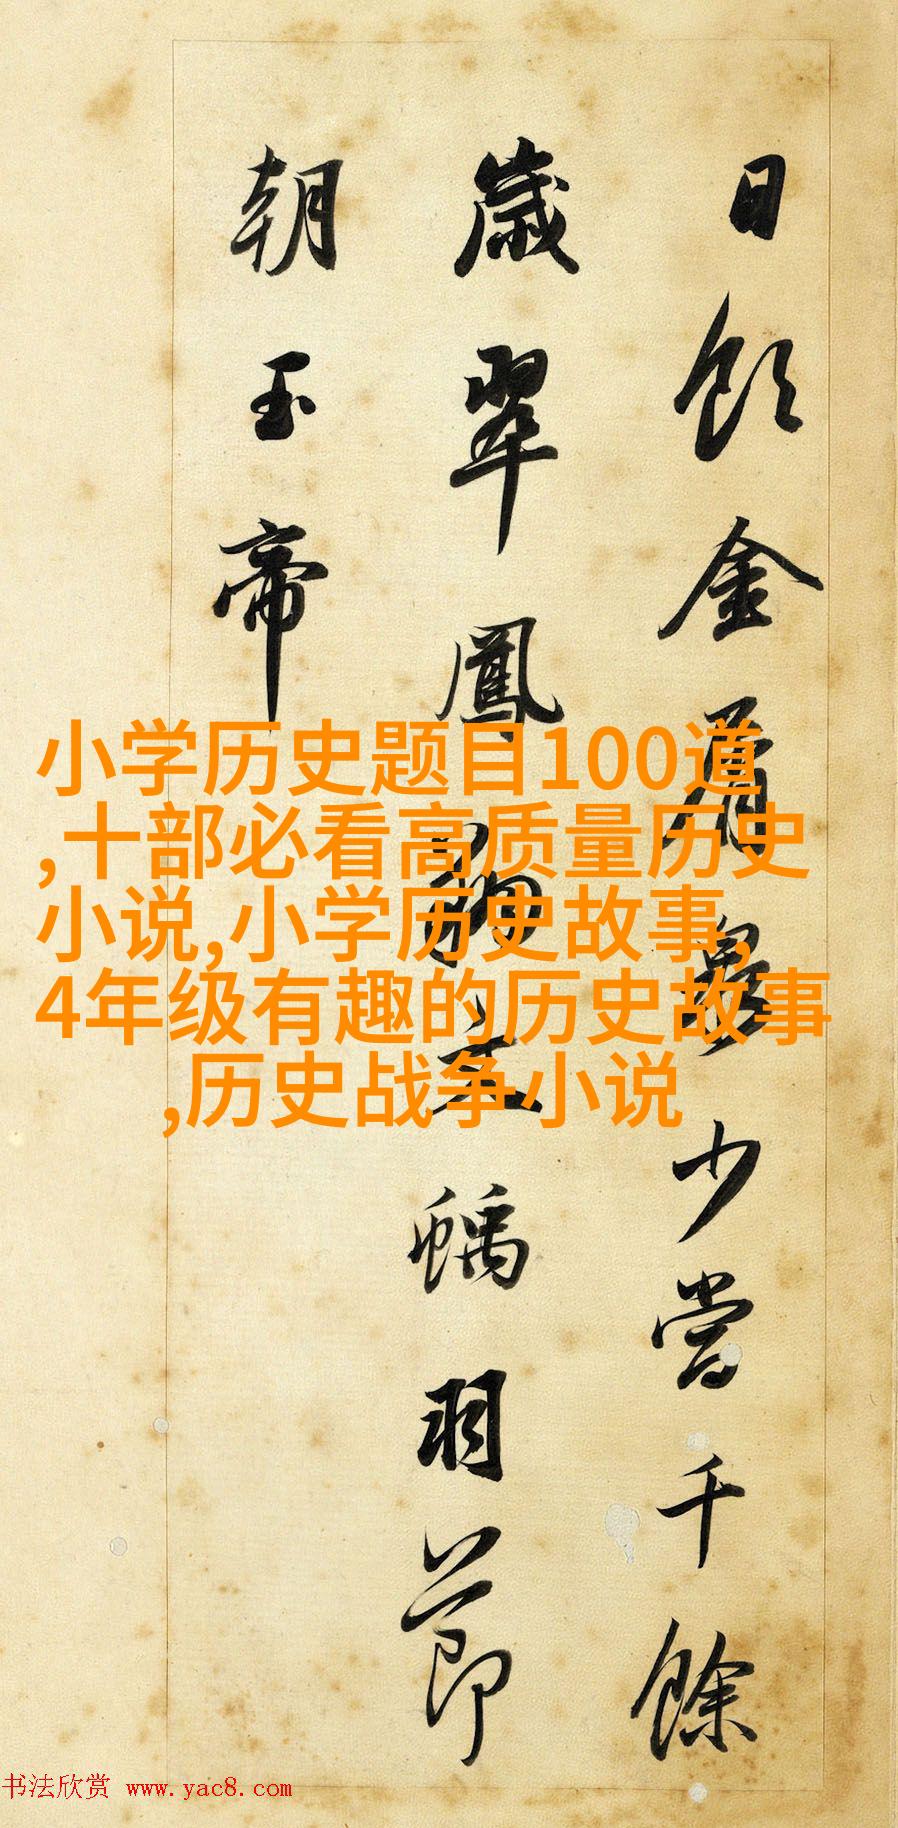 日飲金屑泉少當千餘
歲翠鳳文螭羽節
朝玉帝
小学历史题目100道
,十部必看高质量历史
小说,小学历史故事,
4年级有趣的历史故事
,历史战争小说
书法欣赏 www.yac8.com